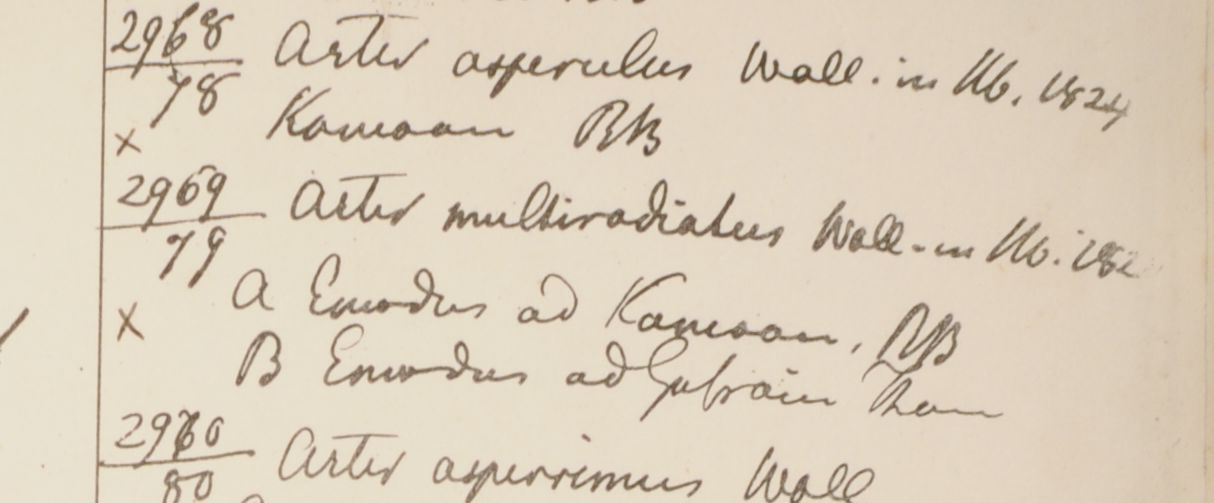 2968/78 Aster asperulus Wall. in Hb. 1824
× Kamaon RB
2969/79 Aster multiradiatus Wall. in Hb. 182
A Emodus ad Kamaon, RB
× B Emodus ad
2970/80 Aster asperrimus Wall